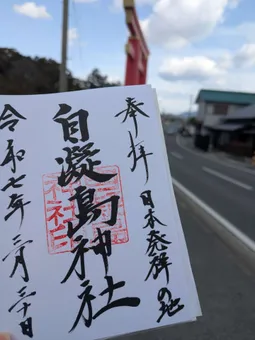 奉拝
日本発祥の地
自凝島神社
令和七年三月三十日